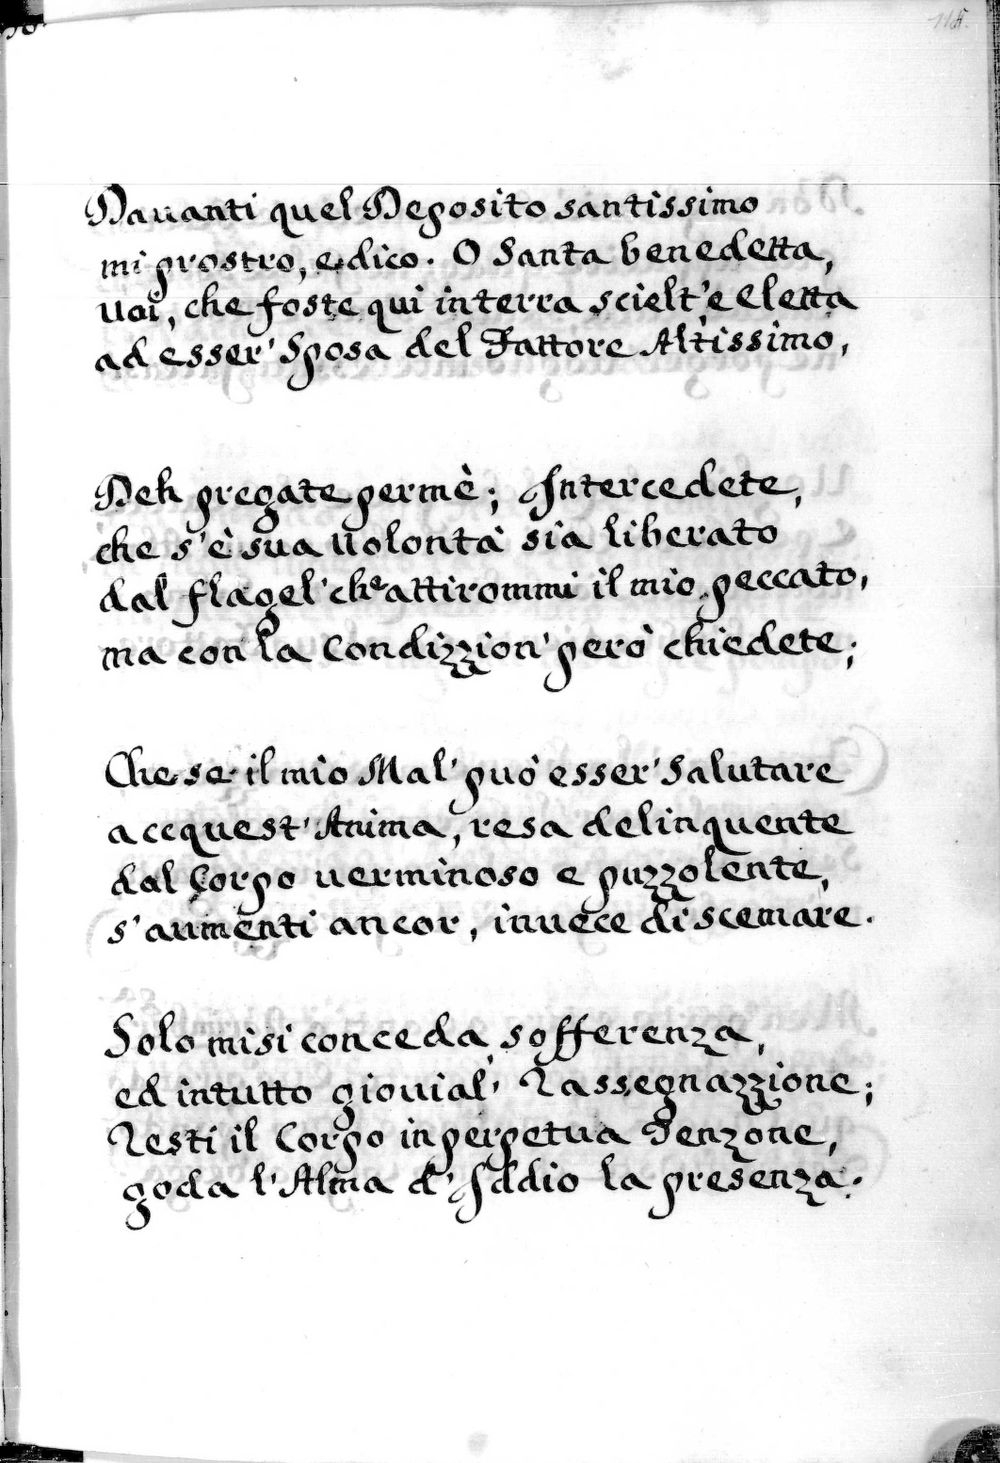 115.
Dauanti quel Deposito santissimo
mi prostro, e dico. O Santa benedetta,
uoi, che foste qui in terra scielt', e eletta
ad esser' Sposa del Fattore Altissimo,
Deh pregate per mè; Intercedete,
che s'è sua uolontà sia liberato
dal flagel' che attirommi il mio peccato,
ma con la Condizzion' però chiedete;
Che se il mio Mal' può esser' Salutare
a ccquest' Anima, resa delinquente
dal Corpo uerminoso e puzzolente,
s'aumenti ancor, inuece di scemare.
Solo mi si conceda sofferenza,
ed in tutto giouial' Rassegnazzione;
Resti il Corpo in perpetua Tenzone,
goda l'Alma d'Iddio la presenza.